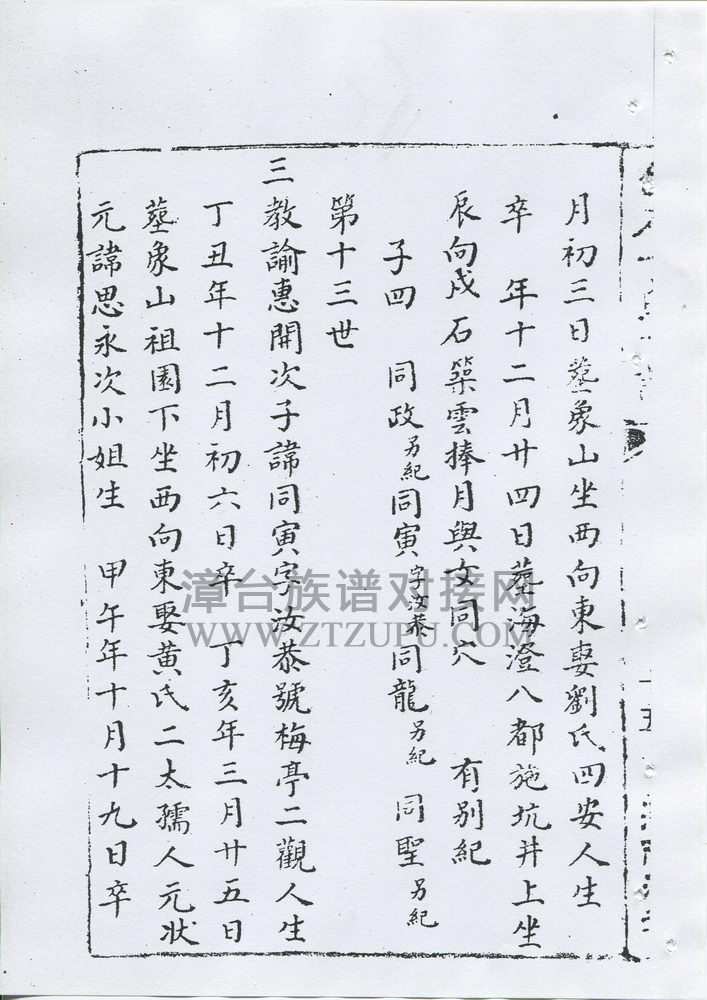 月初三日塟象山坐西向東娶劉氏四安人生
卒 年十二月廿四日塟海澄八都施坑井上坐
辰向戌石築雲捧月與女同穴 有別紀
子四 同政另紀同寅字汝恭同龍另紀 同聖另紀
第十三世
三教諭惠開次子諱同寅字汝恭號梅亭二觀人生
丁丑年十二月初六日卒 丁亥年三月廿五日
塟象山祖園下坐西向東娶黃氏二太孺人元狀
元諱思永次小姐生 甲午年十月十九日卒
漳台族谱对接网
WWW.ZTZUPU.COM